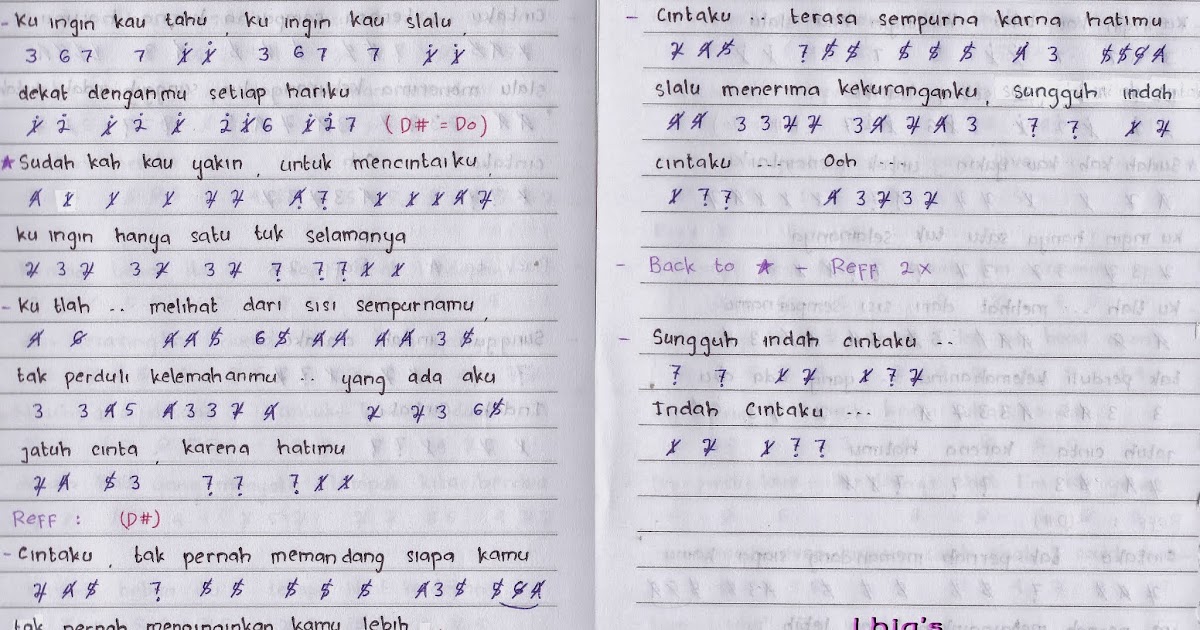 - Ku ingin kau tahu, ku ingin kau slalu,
3 6 7 7 1̸̇ 1̸̇ 3 6 7 7 1̸̇ 1̸̇
dekat denganmu setiap hariku
1̸̇ 2̇ 1̸̇ 2̇ 1̸̇ 2̇ 1̸̇ 6 1̸̇ 2̇ 7 (D# = Do)
★ Sudah kah kau yakin, untuk mencintaiku,
4̸ 1̸ 1̸ 1̸ 2̸ 2̸ 4̸ 7̣ 1̸ 1̸ 1̸ 4̸ 2̸
ku ingin hanya satu tuk selamanya
2̸ 3 2̸ 3 2̸ 3 2̸ 7̣ 7̣ 7̣ 1̸ 1̸
- Ku tlah .. melihat dari sisi sempurnamu,
4̸ 6̸ 4̸ 4̸ 5̸ 6 5̸ 4̸ 4̸ 4̸ 4̸ 3 5̸
tak perduli kelemahanmu .. yang ada aku
3 3 4̸ 5 4̸ 3 3 2̸ 4̸ 2̸ 2̸ 3 6 5̸
jatuh cinta, karena hatimu
2̸ 4̸ 5̸ 3 7̣ 7̣ 7̣ 1̸ 1̸
Reff : (D#)
- Cintaku, tak pernah memandang siapa kamu
2̸ 4̸ 5̸ 7̣ 5̸ 5̸ 5̸ 5̸ 5̸ 4̸ 3 5̸ 5̸ 6̸ 4̸
tak pernah menginginkan kamu lebih
- Cintaku .. terasa sempurna karna hatimu
2̸ 4̸ 5̸ 7 5̸ 5̸ 5̸ 5̸ 5̸ 4̸ 3 5̸ 5̸ 6̸ 4̸
slalu menerima kekuranganku, sungguh indah
4̸ 4̸ 3 3 2̸ 2̸ 3 4̸ 2̸ 4̸ 3 7̣ 7̣ 1̸ 2̸
cintaku .... Ooh ....
1̸ 7̣ 7̣ 4̸ 3 2̸ 3 2̸
- Back to ★ + Reff 2x
- Sungguh indah cintaku ..
7̣ 7̣ 1̸ 2̸ 1̸ 7̣ 2̸
Indah Cintaku ...
1̸ 2̸ 1̸ 7̣ 7̣